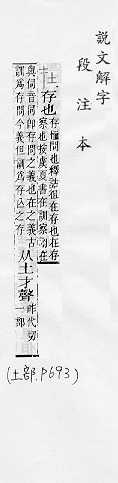 說文解字
段注本
存也
存恤問也釋詁徂在存也在存
察也按虞夏書在訓察謂在
與伺音同卽存問之義也在之義古
訓爲存問今義但訓爲存亡之存
从土才聲
昨代切
一部
(土部.P693)